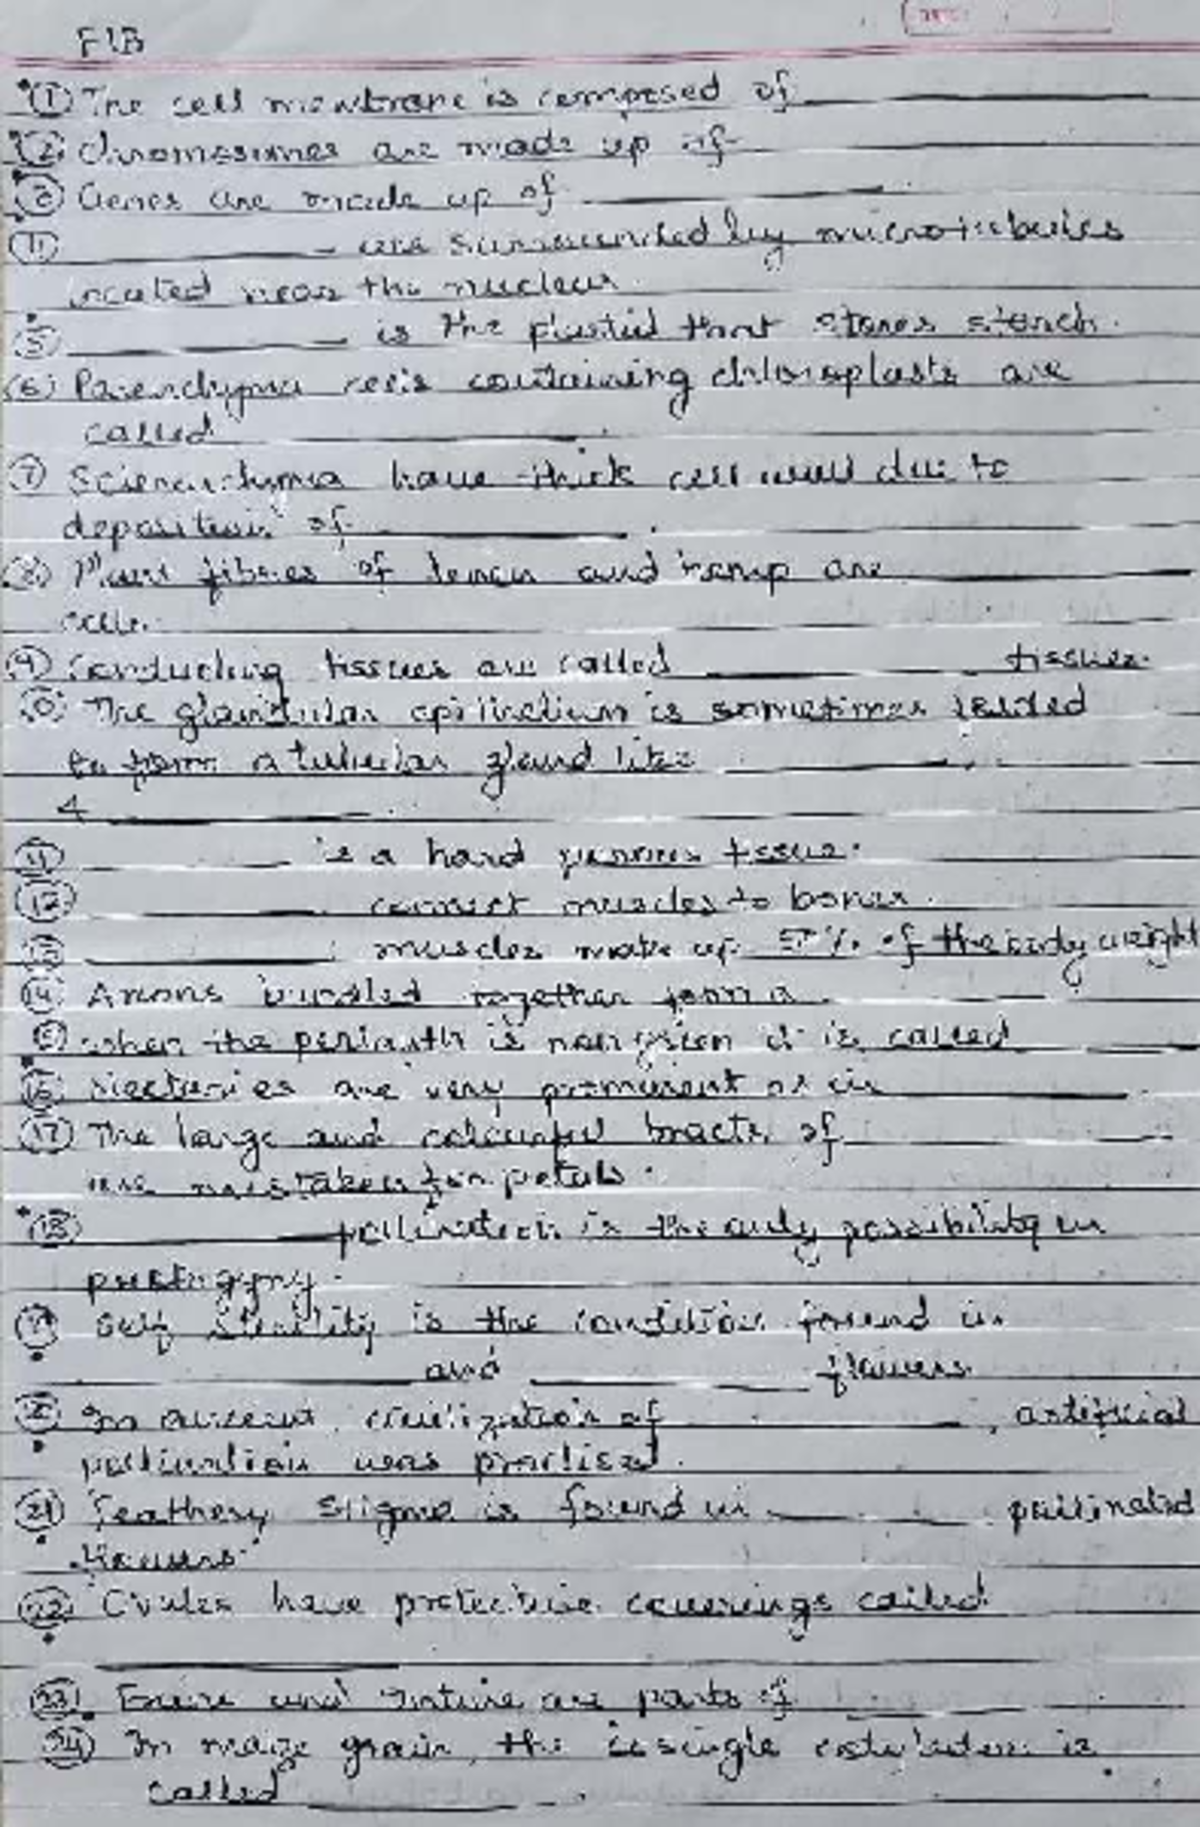 FIB
(1) The cell membrane is composed of
(2) Chromosomes are made up of
(3) Genes are made up of
are surrounded by microtubules
located near the nucleus.
(5) is the plastid that stores starch.
(6) Parenchyma cells containing chloroplasts are
called
(7) Sclerenchyma have thick cell wall due to
deposition of
fibres of and hemp are
cells.
(9) Conducting tissues are called tissues.
The glandular epithelium is sometimes folded
to form a tubular gland like
&
(11) is a hard porous tissue.
(12) connect muscles to bones.
muscles make up % of the body weight
(14) Axons bundled together form a
when the perianth is non green it is called
(16) Nectaries are very prominent as in
(17) The large and colourful bracts of
are mistaken for petals.
(18) pollination is the only possibility in
Self sterility is the condition found in
and flowers
In ancient civilization of , artificial
pollination was practised.
(21) Feathery stigma is found in pollinated
flowers.
(22) Ovules have protective coverings called
(23) Exine and intine are parts of
(24) In maize grain, the single cotyledon is
called